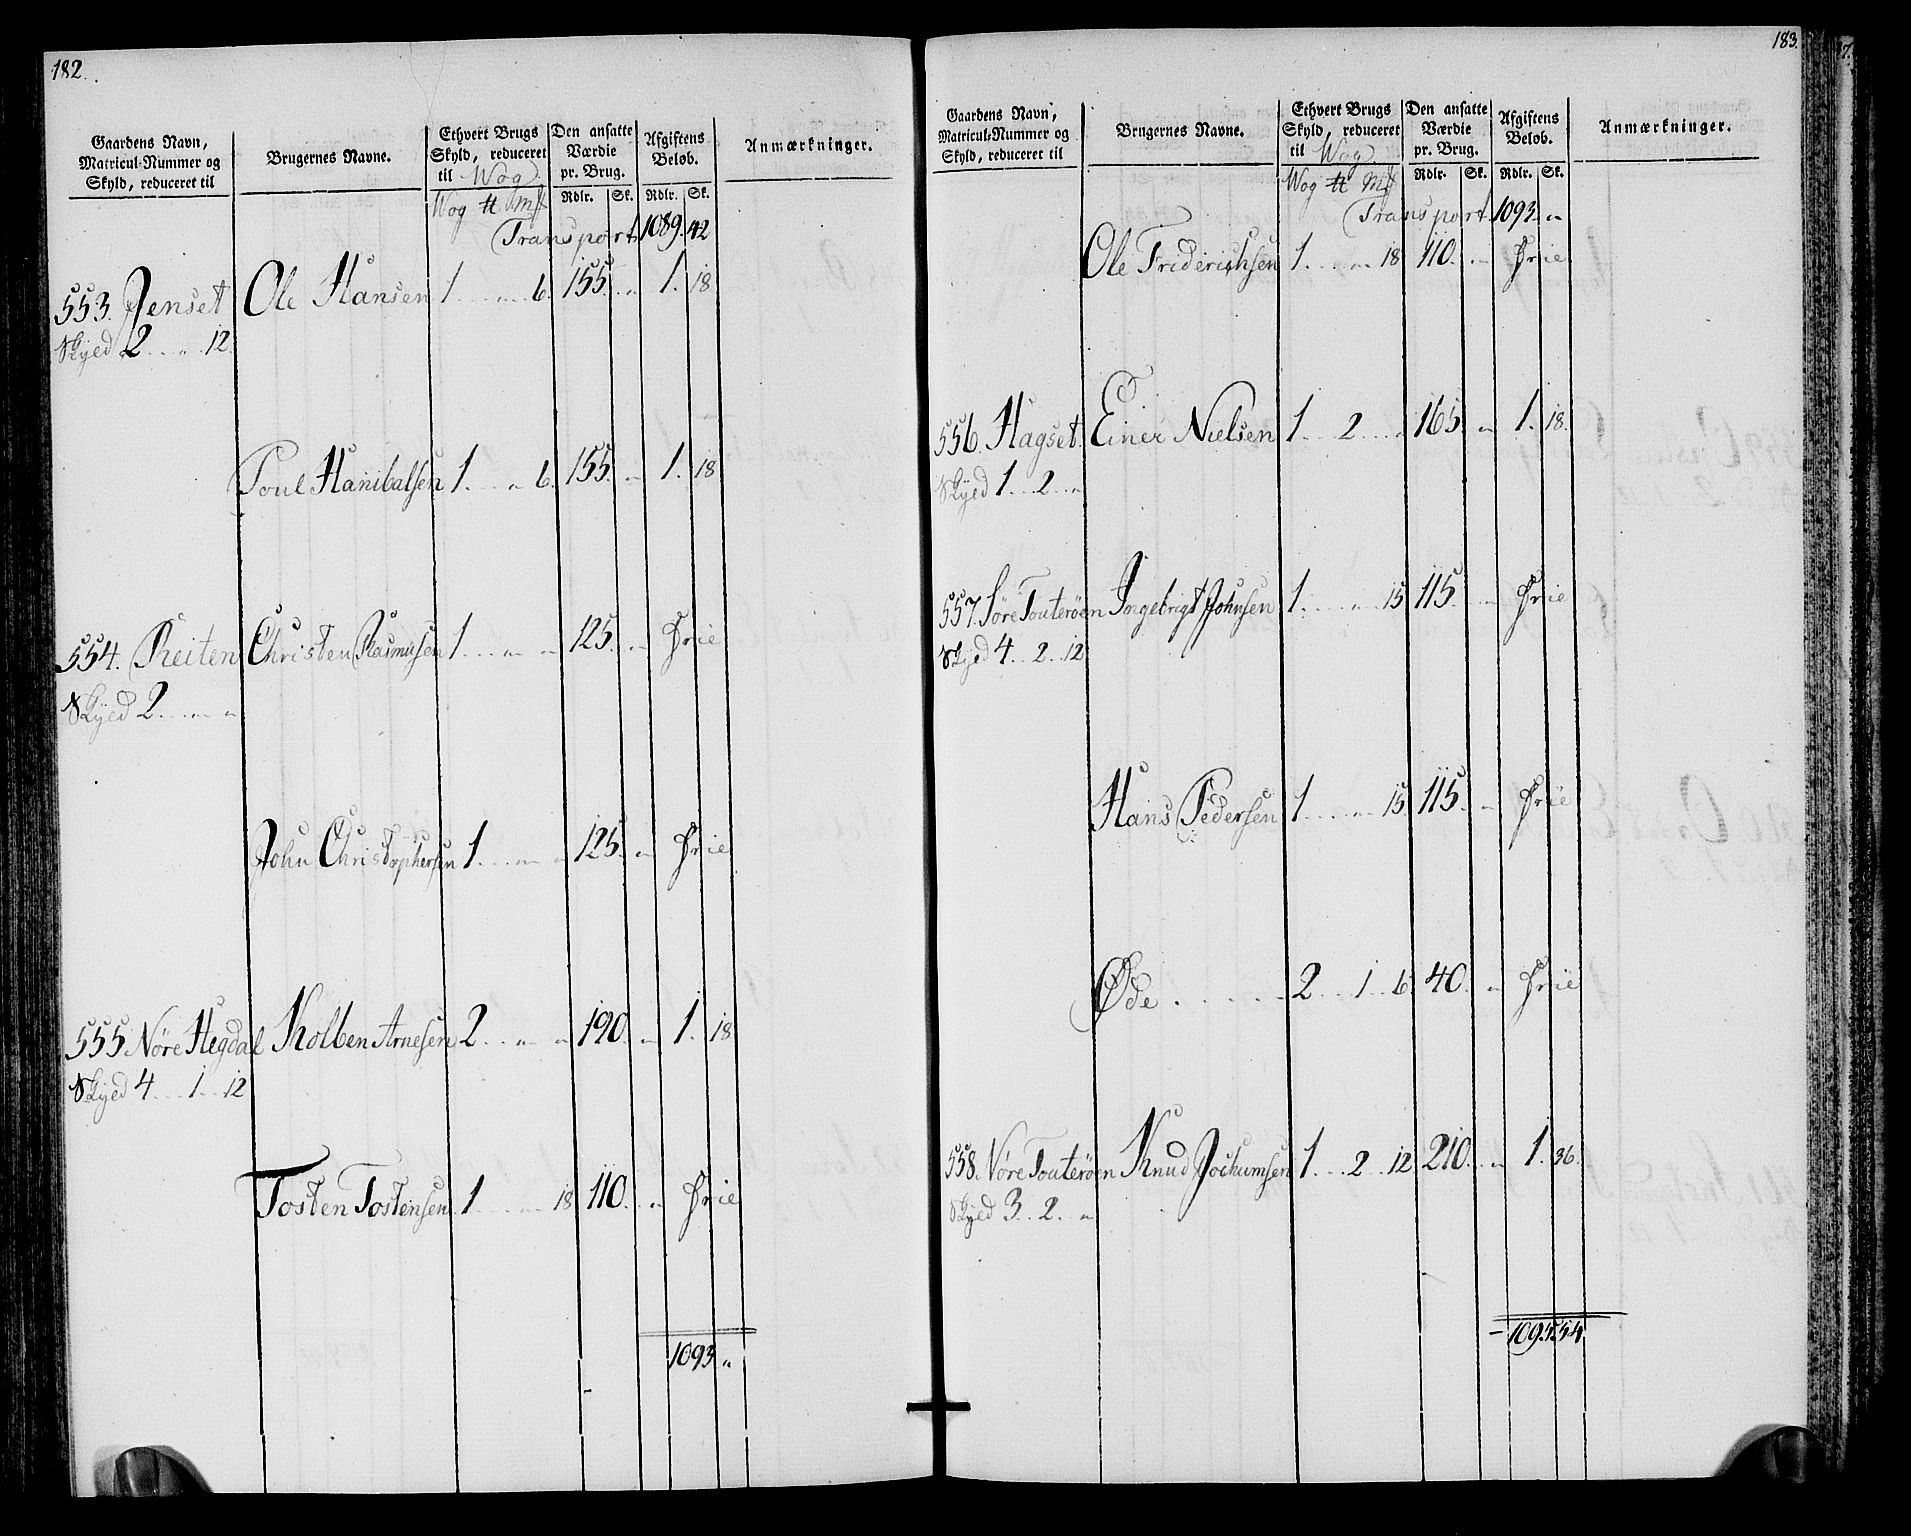 182.
Gaardens Navn, Matricul-Nummer og Skyld, reduceret til
Brugernes Navne.
Ethvert Brugs Skyld, reduceret til Wog
Den ansatte Værdie pr. Brug.
Afgiftens Beløb.
Anmærkninger.
Wog ℔ Mk
Rdlr. Sk. Rdlr. Sk.
Transport 1089. 42
553. Jenset Ole Hansen 1 . . „ . . 6. 155. „ 1. 18
Skyed 2 . . „ . . 12.
Poul Hanibalsen 1 . . „ 6. 155. „ 1. 18
554. Reiten Christen Rasmusen 1 . . „ „ 125. „ Frie
Skyed 2 . . „ „
John Christophersen 1 . . „ „ 125. „ Frie
555 Nøre Hegdal Kolben Arnesen 2 . . „ „ 190. „ 1. 18
Skyed 4 . . 1 . . 12
Tosten Tostensen 1 . . „ 18 110. „ Frie
1093 „
183.
Gaardens Navn, Matricul-Nummer og Skyld, reduceret til
Brugernes Navne.
Ethvert Brugs Skyld, reduceret til Wog
Den ansatte Værdie pr. Brug.
Afgiftens Beløb.
Anmærkninger.
Wog ℔ Mk
Rdlr. Sk. Rdlr. Sk.
Transport 1093. „
Ole Friderichsen 1 . . „ 18 110. „ Frie
556. Hagset Einer Nielsen 1 . . 2 . . „ 165. „ 1. 18.
Skyed 1 . . 2 . . „
557. Søre Touterøen Ingebrigt Johnsen 1 . . „ 15 115. „ Frie
Skyed 4 . . 2 . . 12
Hans Pedersen 1 . . „ 15. 115. „ Frie
Øde . . . . . 2 . . 1 . . 6. 40. „ Frie
558. Nøre Touterøen Knud Jochumsen 1 . . 2 . . 12 210. „ 1. 36.
Skyed 3 . . 2 . . „
1095. 54